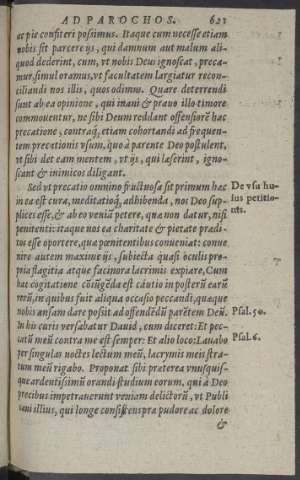 AD PAROCHOS. 621
ac pie confiteri possimus. Itaque cum necesse etiam
nobis sit parcere ijs, qui damnum aut malum ali-
quod dederint, cum, vt nobis Deus ignoscat, preca-
mur, simul oramus, vt facultatem largiatur recon-
ciliandi nos illis, quos odimus. Quare deterrendi
sunt ab ea opinione, qui inani & prauo illo timore
commouentur, ne sibi Deum reddant offensiorē hac
precatione, contraq́, etiam cohortandi ad frequen-
tem precationis vsum, quo à parente Deo postulent,
vt sibi det eam mentem, vt ijs, qui læserint, igno-
scant & inimicos diligant.
Sed vt precatio omnino fructuosa sit primum hæc
in ea est cura, meditatioq́, adhibenda, nos Deo sup-
plices esse, & ab eo veniā petere, quæ non datur, nisi
pœnitenti: itaque nos ea charitate & pietate prædi-
tos esse oportere, quæ pœnitentibus conueniat: conue
nire autem maxime ijs, subiecta quasi oculis pro-
pria flagitia atque facinora lacrimis expiare. Cum
hac cogitatione cōiūgēda est cautio in posterū earū
rerū, in quibus fuit aliqua occasio peccandi, quæque
nobis ansam dare possit ad offendēdū parētem Deū.
In his curis versabatur Dauid, cum diceret: Et pec-
catū meū contra me est semper: Et alio loco: Lauabo
per singulas noctes lectum meū, lacrymis meis stra-
tum meū rigabo. Proponat sibi præterea vnusquis-
que ardentissimū orandi studium eorum, qui à Deo
precibus impetrauerunt veniam delictorū, vt Publi
cani illius, qui longe consistens præ pudore ac dolore
&
De vsu hu-
ius petitio-
nis.
Psal. 50.
Psal. 6.